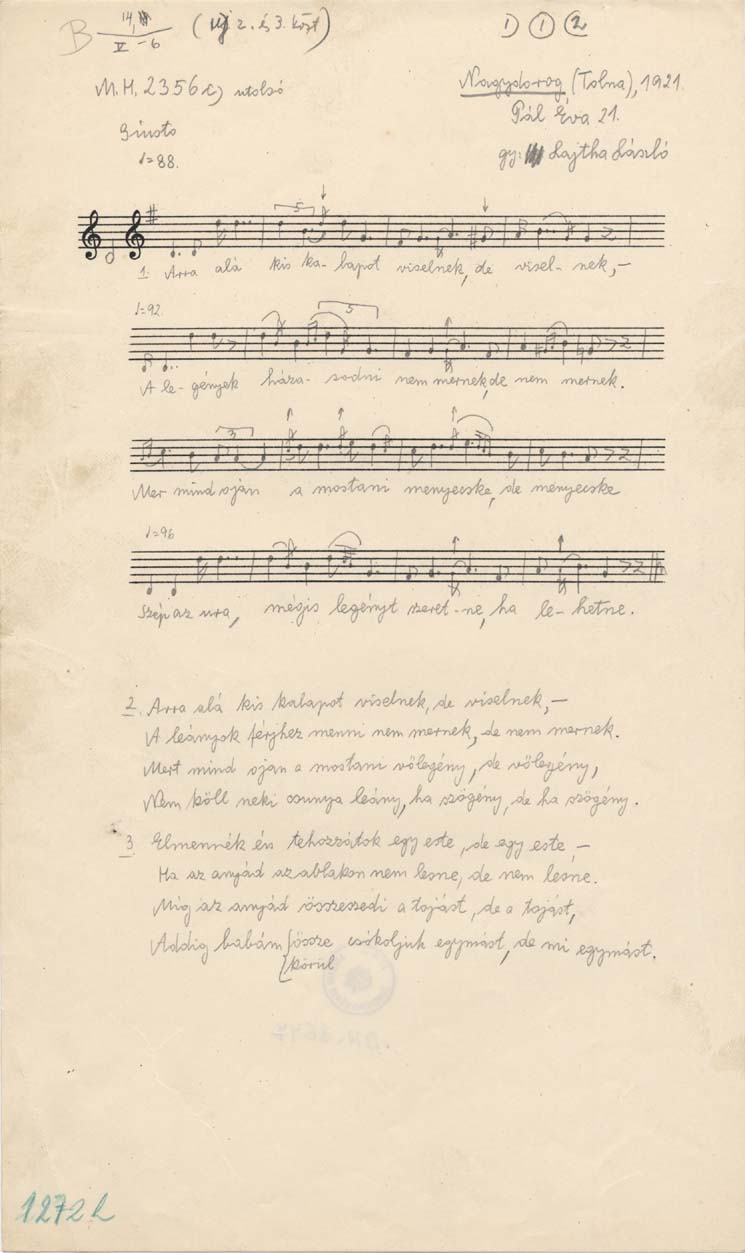 B 14, V-6 (új 2. és 3. közt) 1) 1 2
M.H. 2356 c) utolsó
Nagydorog (Tolna), 1921.
Giusto
Pál Éva 21.
♩=88.
gy: Lajtha László
5
1. Arra alá kis ka- lapot viselnek, de visel- nek,-
♩=92.
5
A le- gények háza- sodni nem mernek, de nem mernek.
3
Mer mind oján a mostani menyecske, de menyecske
♩=96
Szép az ura, mégis legényt szeret-ne, ha le- hetne.
2. Arra alá kis kalapot viselnek, de viselnek,-
A leányok férjhez menni nem mernek, de nem mernek.
Mert mind oján a mostani vőlegény, de vőlegény,
Nem köll neki csunya leány, ha szögény, de ha szögény.
3 Elmennék én tehozzátok egy este, de egy este,-
Ha az anyád az ablakon nem lesne, de nem lesne.
Mig az anyád összeszedi a tojást, de a tojást,
Addig babám össze csókoljuk egymást, de mi egymást.
körül